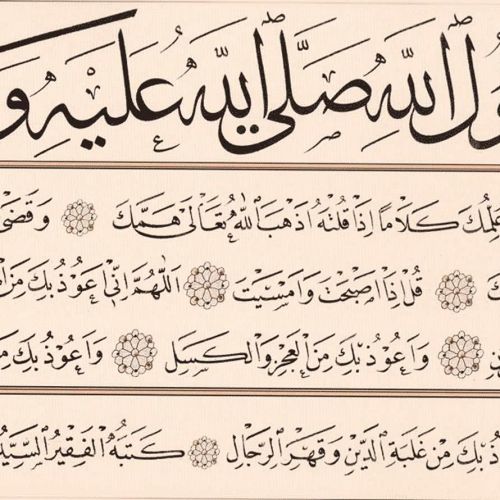 الله صَلَّى اللهُ عَلَيْهِ وَ
كَلَامًا إِذَا قُلْتَهُ أَذْهَبَ اللهُ تَعَالَى هَمَّكَ وَقَضَى
قُلْ إِذَا أَصْبَحْتَ وَأَمْسَيْتَ اَللّٰهُمَّ إِنِّي أَعُوذُ بِكَ مِنَ
وَأَعُوذُ بِكَ مِنَ الْعَجْزِ وَالْكَسَلِ وَأَعُوذُ بِكَ
بِكَ مِنْ غَلَبَةِ الدَّيْنِ وَقَهْرِ الرِّجَالِ كَتَبَهُ الْفَقِيرُ السَّيِّدُ